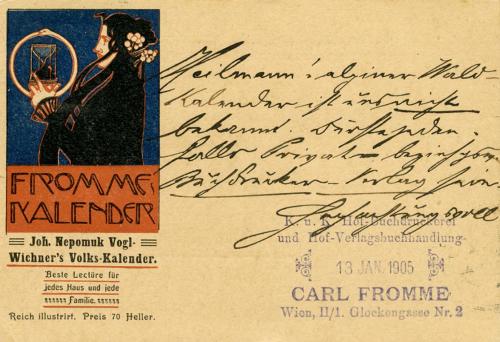 FROMMES
KALENDER
Joh. Nepomuk Vogl-
Wichner's Volks-Kalender.
Beste Lectüre für
jedes Haus und jede
Familie.
Reich illustrirt. Preis 70 Heller.
Heilmann's alpiner Wald
Kalender ist uns nicht
bekannt. Dürfte jeden-
falls Privat- beziehgsw.
Buchdrucker-Verlag sein
Hochachtungsvoll
K. u. K. Hof-Buchdruckerei
und Hof-Verlagsbuchhandlung
13 JAN. 1905
CARL FROMME
Wien, II/1. Glockengasse Nr. 2